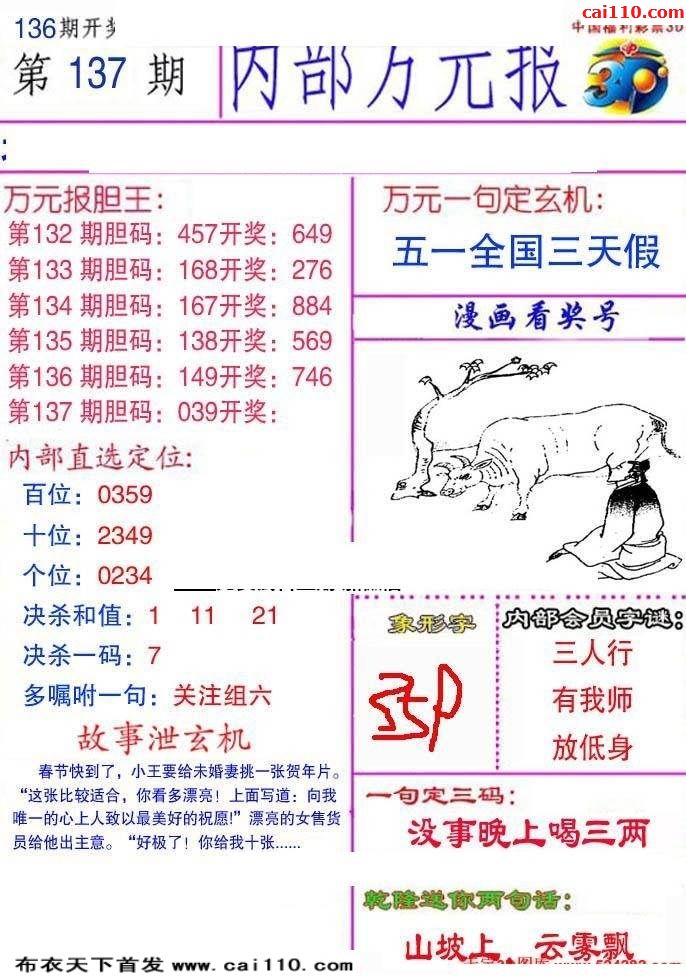 136期开奖
cai110.com
中国福利彩票3D
第 137 期
内部万元报
3D
万元报胆王：
第132 期胆码：457开奖：649
第133 期胆码：168开奖：276
第134 期胆码：167开奖：884
第135 期胆码：138开奖：569
第136 期胆码：149开奖：746
第137 期胆码：039开奖：
内部直选定位:
百位：0359
十位：2349
个位：0234
决杀和值：1 11 21
决杀一码：7
多嘱咐一句：关注组六
故事泄玄机
春节快到了，小王要给未婚妻挑一张贺年片。
“这张比较适合，你看多漂亮！上面写道：向我
唯一的心上人致以最美好的祝愿!”漂亮的女售货
员给他出主意。“好极了！你给我十张......
万元一句定玄机:
五一全国三天假
漫画看奖号
象形字
内部会员字谜:
三人行
有我师
放低身
一句定三码:
没事晚上喝三两
乾隆送你两句话:
山坡上 云雾飘
布衣天下首发 www.cai110.com